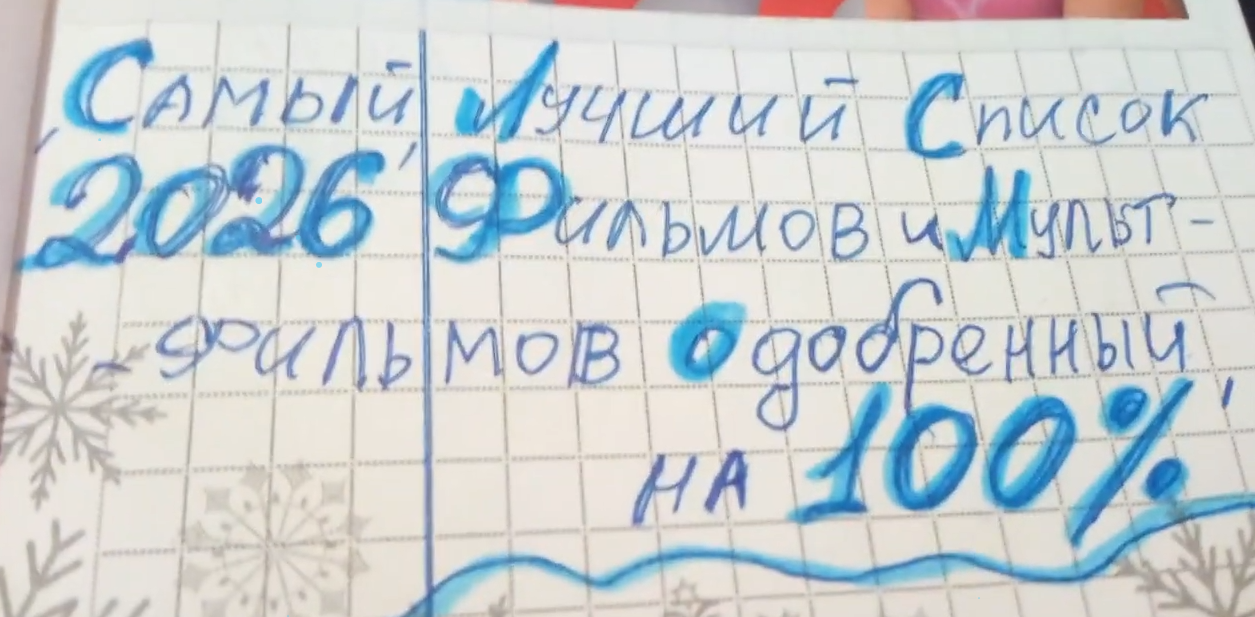 Самый Лучший Список
2026 Фильмов и Мульт-
-фильмов Одобренный
на 100%